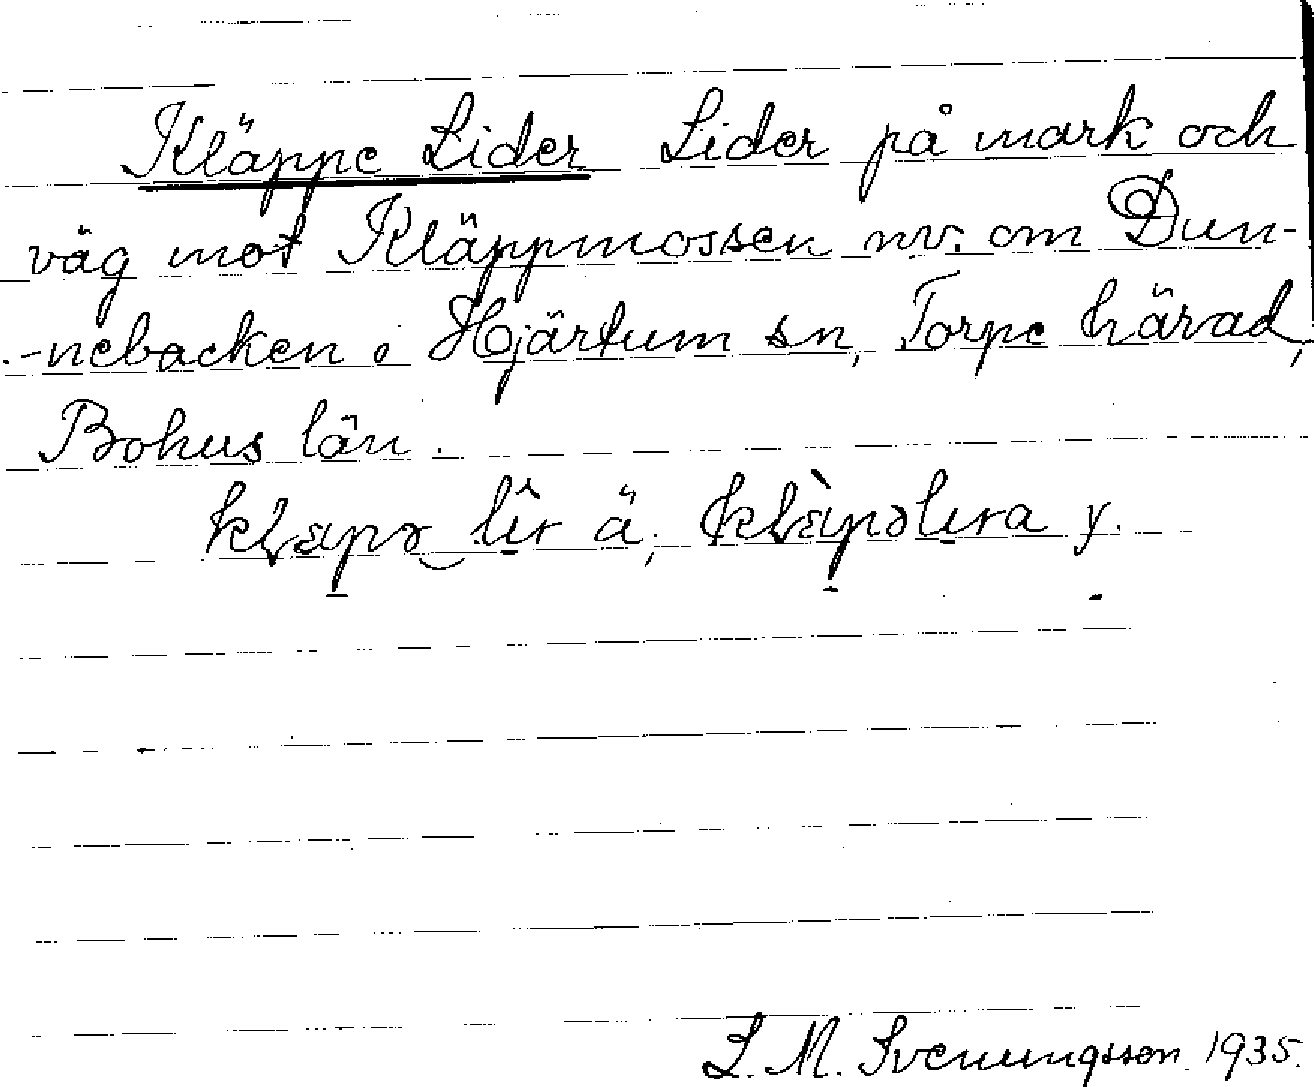 Kläppe Lider Lider på mark och
väg mot Kläppmossen nv. om Dun-
-nebacken i Hjärtum sn, Torpe härad,
Bohus län.
ä,
y.
L. M. Svenungsson 1935.